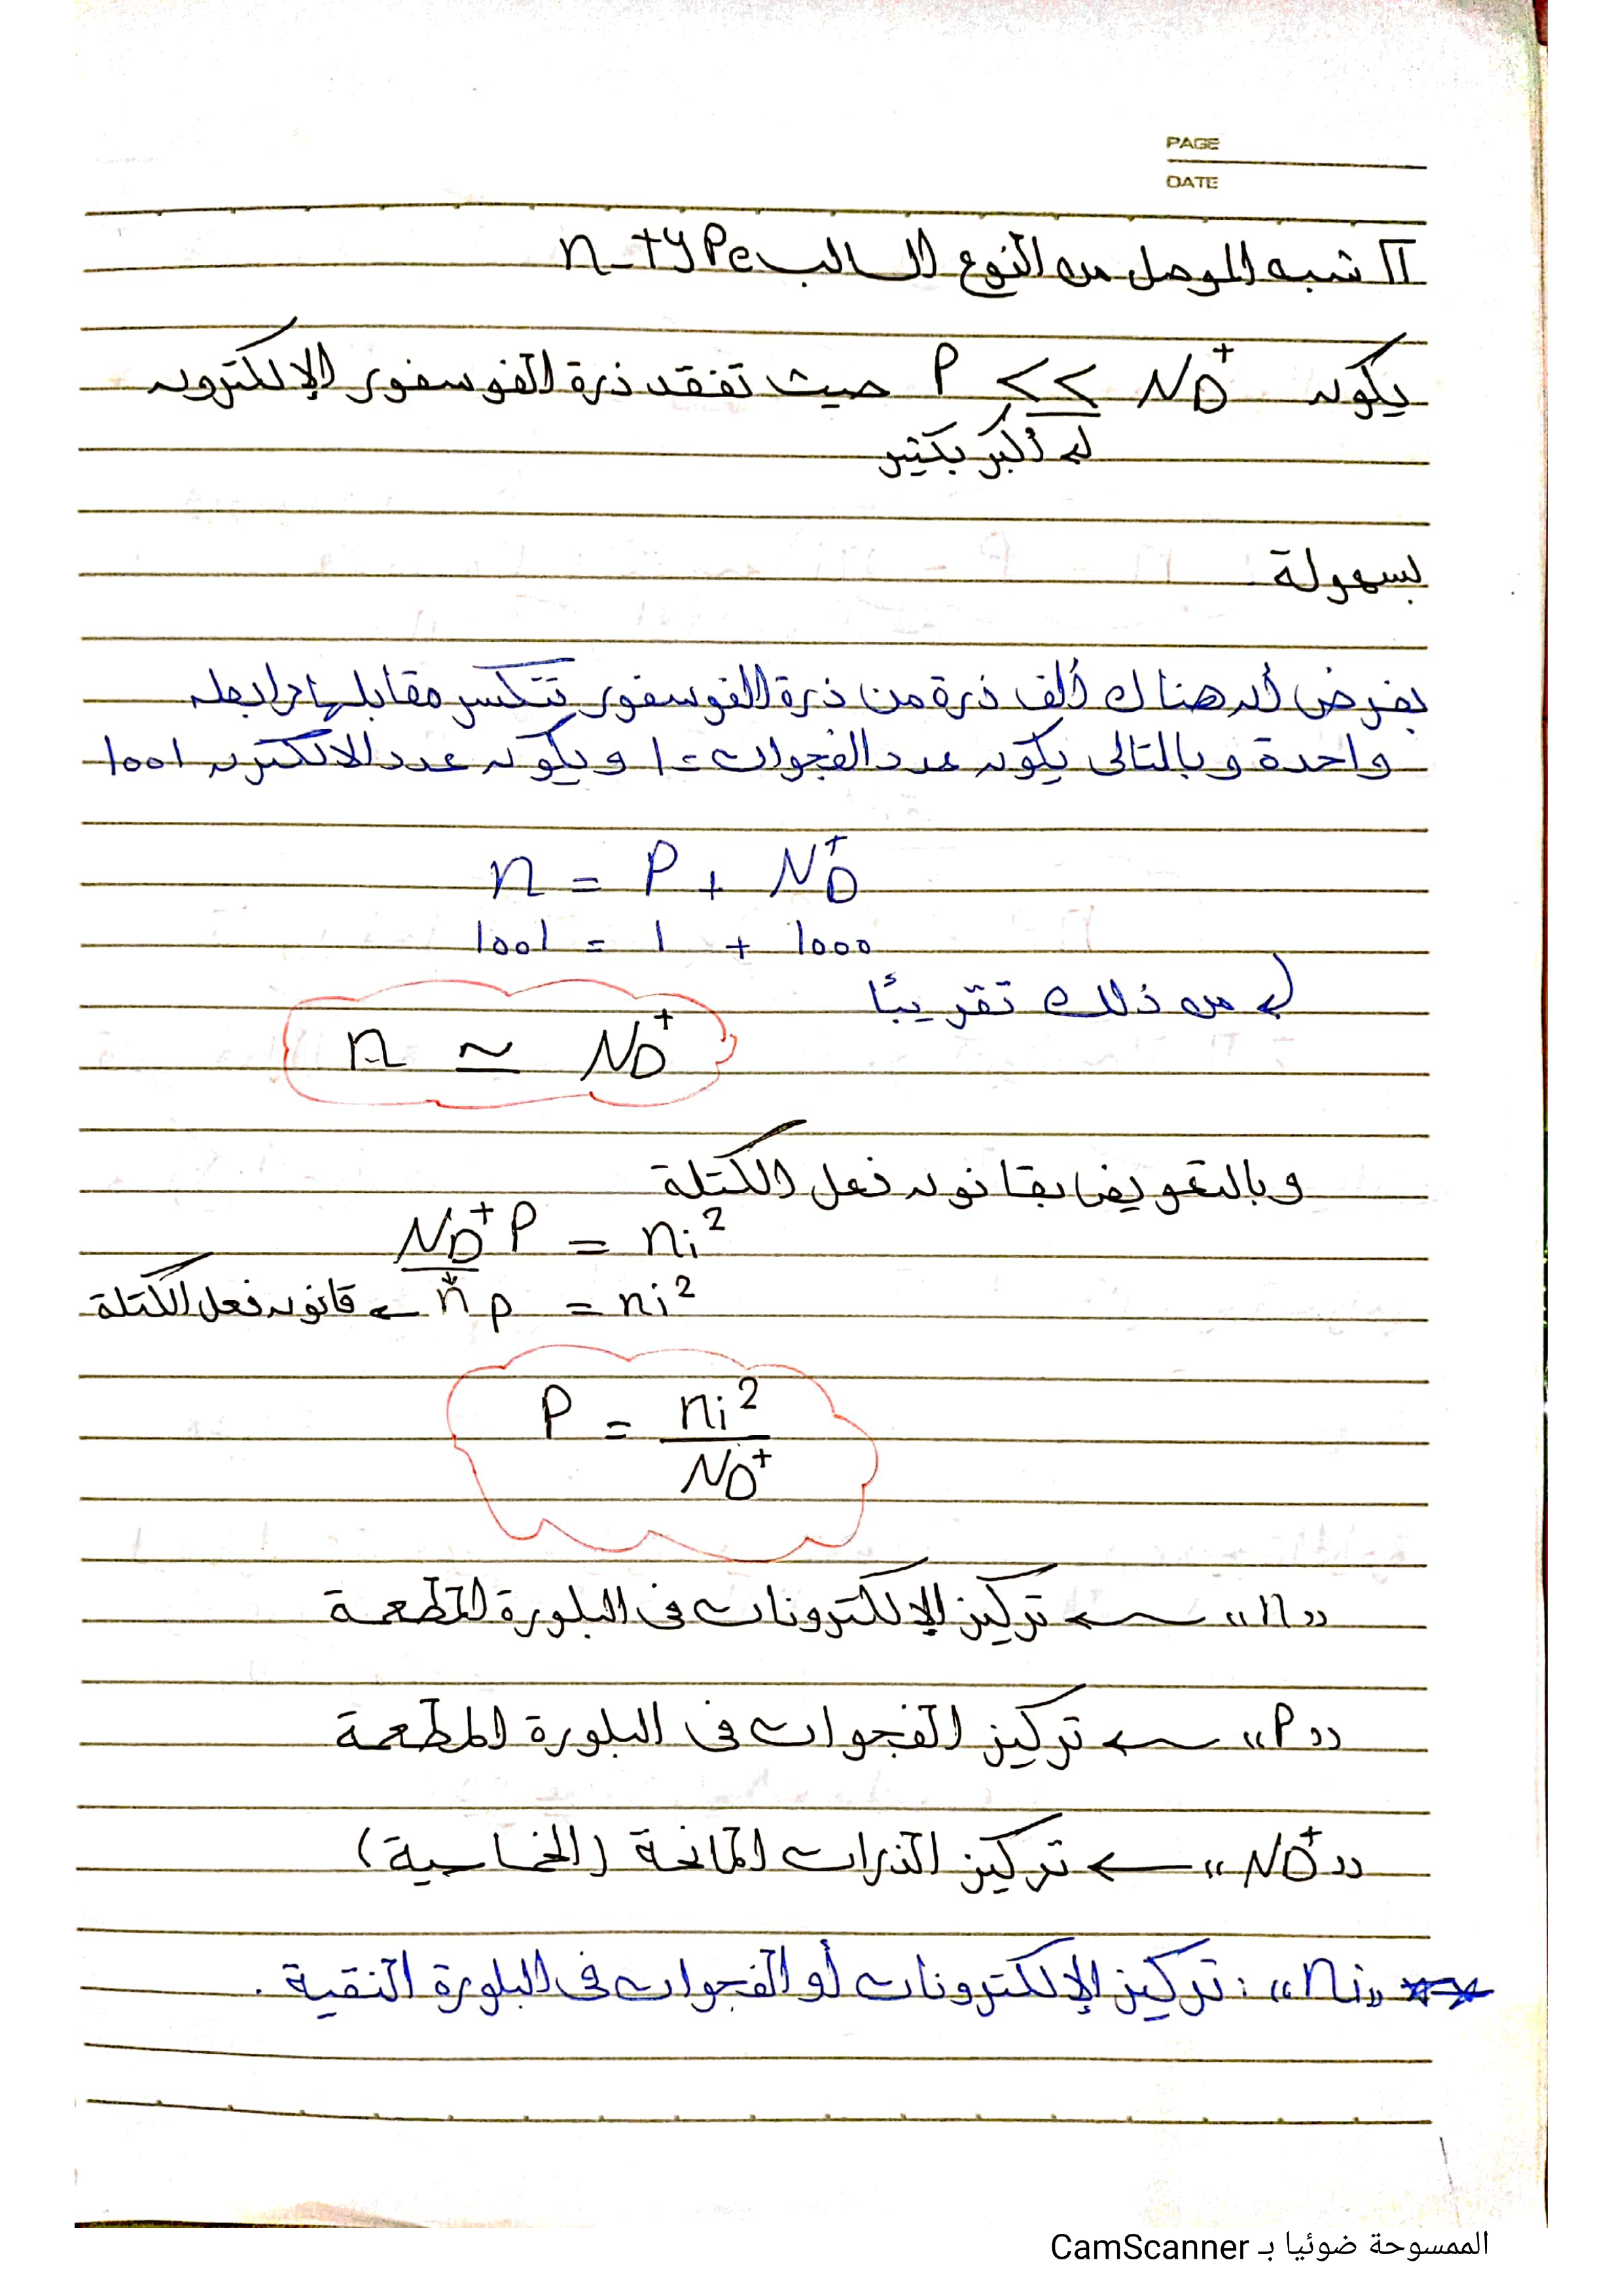 PAGE
DATE
II شبه الموصل من النوع السالب n-type
يكون P << ND+ حيث تفقد ذرة الفوسفور الإلكترون
أكبر بكثير
بسهولة
بفرض أن هناك ألف ذرة من ذرة الفوسفور تتكسر مقابلها رابطه
واحدة وبالتالى يكون عدد الفجوات = 1 ويكون عدد الالكترن 1001
n = P + ND+
1001 = 1 + 1000
من ذلك تقريبًا
n ≃ ND+
وبالتعويض بقانون فعل الكتلة
ND+ P = ni²
n p = ni² ← قانون فعل الكتلة
P = ni² / ND+
"n" ← تركيز الإلكترونات فى البلورة المطعمة
"P" ← تركيز الفجوات فى البلورة المطعمة
"ND+" ← تركيز الذرات المانحة (الخماسية)
"ni" : تركيز الإلكترونات أو الفجوات فى البلورة النقية .
الممسوحة ضوئيا بـ CamScanner